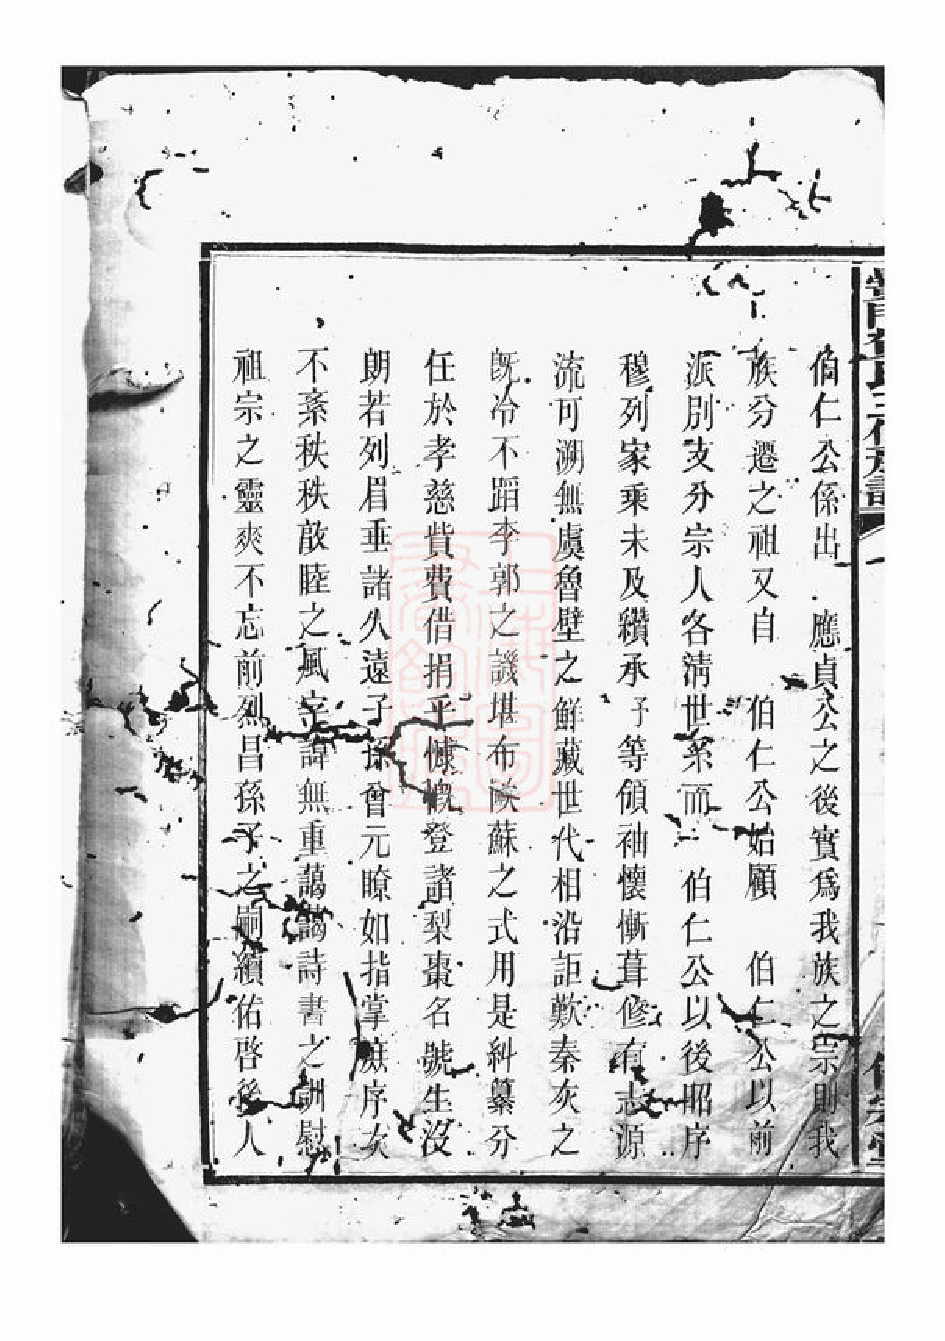 伯仁公係出　應貞公之後實爲我族之宗則我
族分遷之祖又自　伯仁公始顧　伯仁公以前
派別支分宗人各淸世系而　伯仁公以後昭序
穆列家乘未及纘承子等領袖懷慚葺修有志源
流可溯無虞魯壁之鮮藏世代相沿詎歎秦灰之
旣冷不蹈李郭之譏堪布歐蘇之式用是糾纂分
任於孝慈貲費借捐乎慷慨登諸梨棗名號生沒
朗若列眉垂諸久遠子孫曾元瞭如指掌庶序次
不紊秩秩敵睦之風字諱無重藹藹詩書之訓慰
祖宗之靈爽不忘前烈昌孫子之嗣續佑啓後人